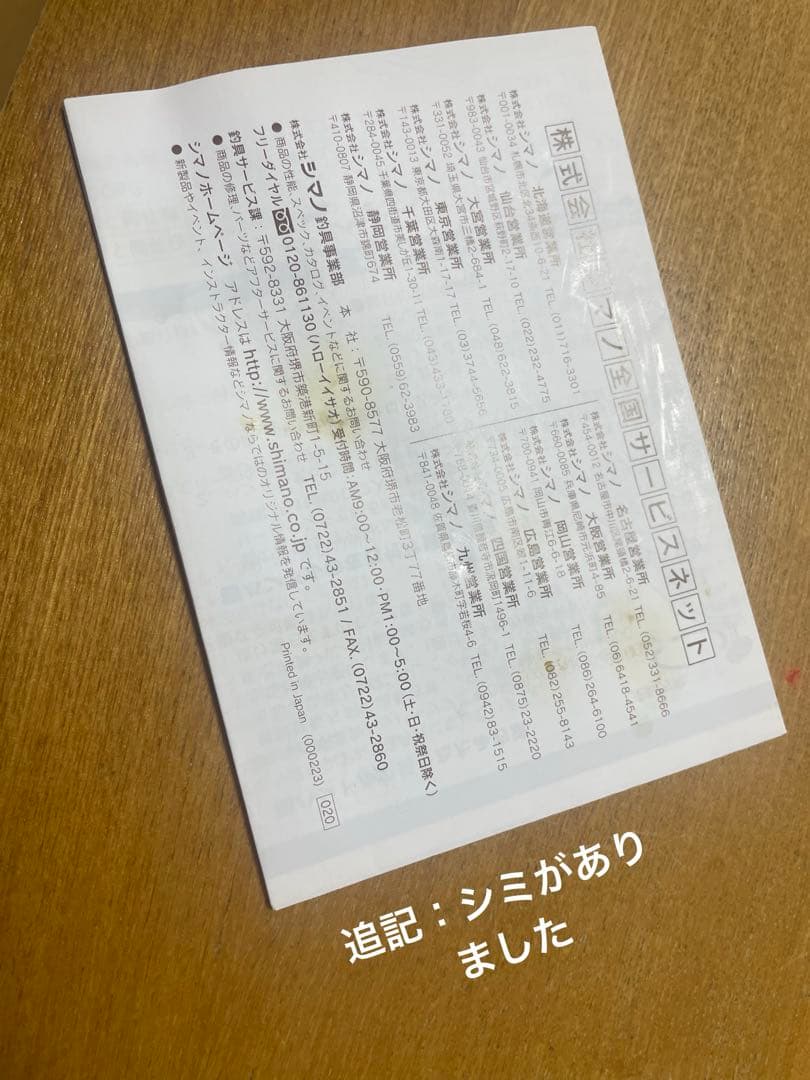 株式会社シマノ全国サービスネット
株式会社シマノ 北海道営業所
〒001-0034 札幌市北区北34条西10-6-21 TEL.(011)716-3301
株式会社シマノ 仙台営業所
〒983-0043 仙台市宮城野区萩野町2-17-10 TEL.(022)232-4775
株式会社シマノ 大宮営業所
〒331-0052 埼玉県大宮市三橋2-684-1 TEL.(048)622-3815
株式会社シマノ 東京営業所
〒143-0013 東京都大田区大森南1-17-17 TEL.(03)3744-5656
株式会社シマノ 千葉営業所
〒284-0045 千葉県四街道市美しが丘1-30-11 TEL.(043)433-
株式会社シマノ 静岡営業所
〒410-0807 静岡県沼津市錦町674 TEL.(0559)62-3983
株式会社シマノ 名古屋営業所
〒454-0012 名古屋市中川区尾頭橋2-6-21 TEL.(052)331-8666
株式会社シマノ 大阪営業所
〒660-0085 兵庫県尼崎市元浜町4-85 TEL.(06)6418-4541
株式会社シマノ 岡山営業所
〒700-0941 岡山市青江6-6-18 TEL.(086)264-6100
株式会社シマノ 広島営業所
広島市南区 1-11-6 TEL.(082)255-8143
四国営業所
香川県観音寺市流岡町1496-1 TEL.(0875)23-2220
株式会社シマノ 九州営業所
〒841-0048 佐賀県鳥栖市藤木町字若桜4-6 TEL.(0942)83-1515
株式会社シマノ釣具事業部 本社:〒590-8577 大阪府堺市老松町3丁77番地
●商品の性能、スペック、カタログ、イベントなどに関するお問い合わせ
フリーダイヤル 0120-861130(ハローイイサオ)受付時間:AM9:00〜12:00・PM1:00〜5:00(土・日・祝祭日除く)
釣具サービス課:〒592-8331 大阪府堺市築港新町1-5-15 TEL.(0722)43-2851 / FAX.(0722)43-2860
●商品の修理、パーツなどアフターサービスに関するお問い合わせ
シマノホームページ アドレスは http://www.shimano.co.jp です。
●新製品やイベント、インストラクター情報などシマノならではのオリジナル情報を発信しています。
Printed in Japan (000223) 020
追記：シミがあり
ました